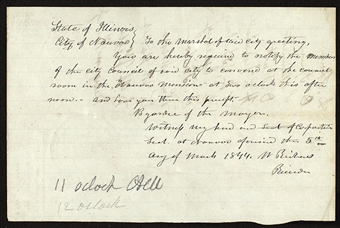 State of Illinois
City of Nauvoo } To the Marshal of said city greeting.
You are hereby required to notify the members
of the city council of said city to convene at the council
room in the Nauvoo mansion at two oclock this after
noon. and have you there this precept.
By order of the Mayor.
Witness my hand and seal of corporation
Seal. at Nauvoo aforesaid this 5th
day of March 1844. W Richards
Recorder
11 oclock
12 oclock